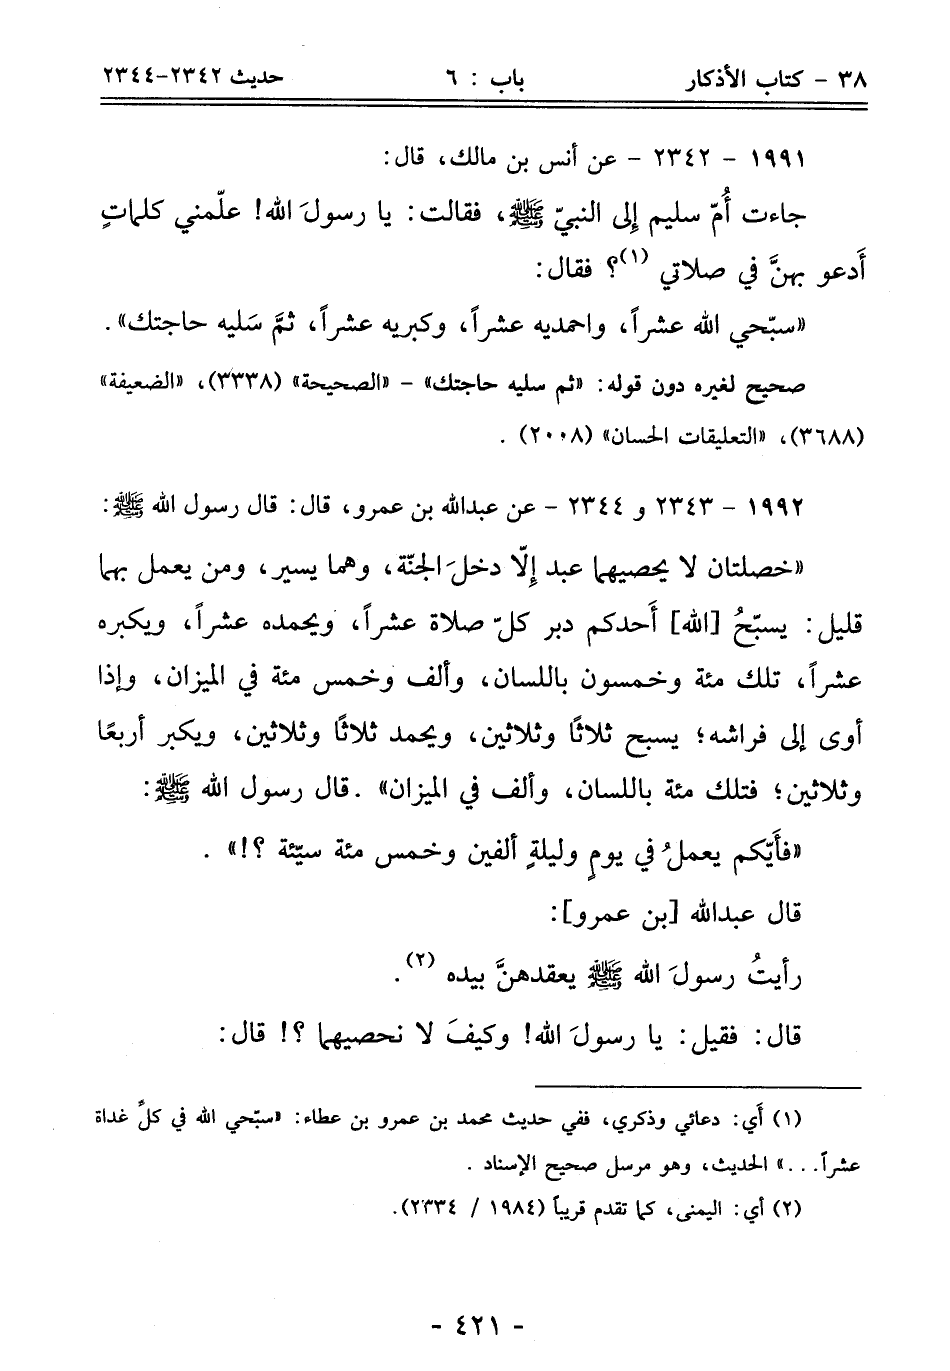 ٣٨ - كتاب الأذكار باب : ٦ حديث ٢٣٤٢-٢٣٤٤
١٩٩١ - ٢٣٤٢ - عن أنس بن مالك، قال:
جاءت أُمّ سليم إلى النبيّ ﷺ، فقالت: يا رسولَ الله! علّمني كلماتٍ
أَدعو بهنَّ في صلاتي (١)؟ فقال:
«سبّحي الله عشراً، واحمديه عشراً، وكبريه عشراً، ثمَّ سَليه حاجتك».
صحيح لغيره دون قوله: «ثم سليه حاجتك» - «الصحيحة» (٣٣٣٨)، «الضعيفة»
(٣٦٨٨)، «التعليقات الحسان» (٢٠٠٨) .
١٩٩٢ - ٢٣٤٣ و ٢٣٤٤ - عن عبدالله بن عمرو، قال: قال رسول الله ﷺ:
«خصلتان لا يحصيهما عبد إلّا دخلَ الجنّة، وهما يسير، ومن يعمل بهما
قليل: يسبّحُ [الله] أَحدكم دبر كلّ صلاة عشراً، ويحمده عشراً، ويكبره
عشراً، تلك مئة وخمسون باللسان، وألف وخمس مئة في الميزان، وإذا
أوى إلى فراشه؛ يسبح ثلاثًا وثلاثين، ويحمد ثلاثًا وثلاثين، ويكبر أربعًا
وثلاثين؛ فتلك مئة باللسان، وألف في الميزان» .قال رسول الله ﷺ:
«فأَيّكم يعملُ في يومٍ وليلةٍ ألفين وخمس مئة سيّئة ؟!» .
قال عبدالله [بن عمرو]:
رأيتُ رسولَ الله ﷺ يعقدهنَّ بيده (٢).
قال: فقيل: يا رسولَ الله! وكيفَ لا نحصيهما ؟! قال:
(١) أَي: دعائي وذكري، ففي حديث محمد بن عمرو بن عطاء: «سبّحي الله في كلِّ غداة
عشراً...» الحديث، وهو مرسل صحيح الإسناد .
(٢) أي: اليمنى، كما تقدم قريباً (١٩٨٤ / ٢٣٣٤).
- ٤٢١ -